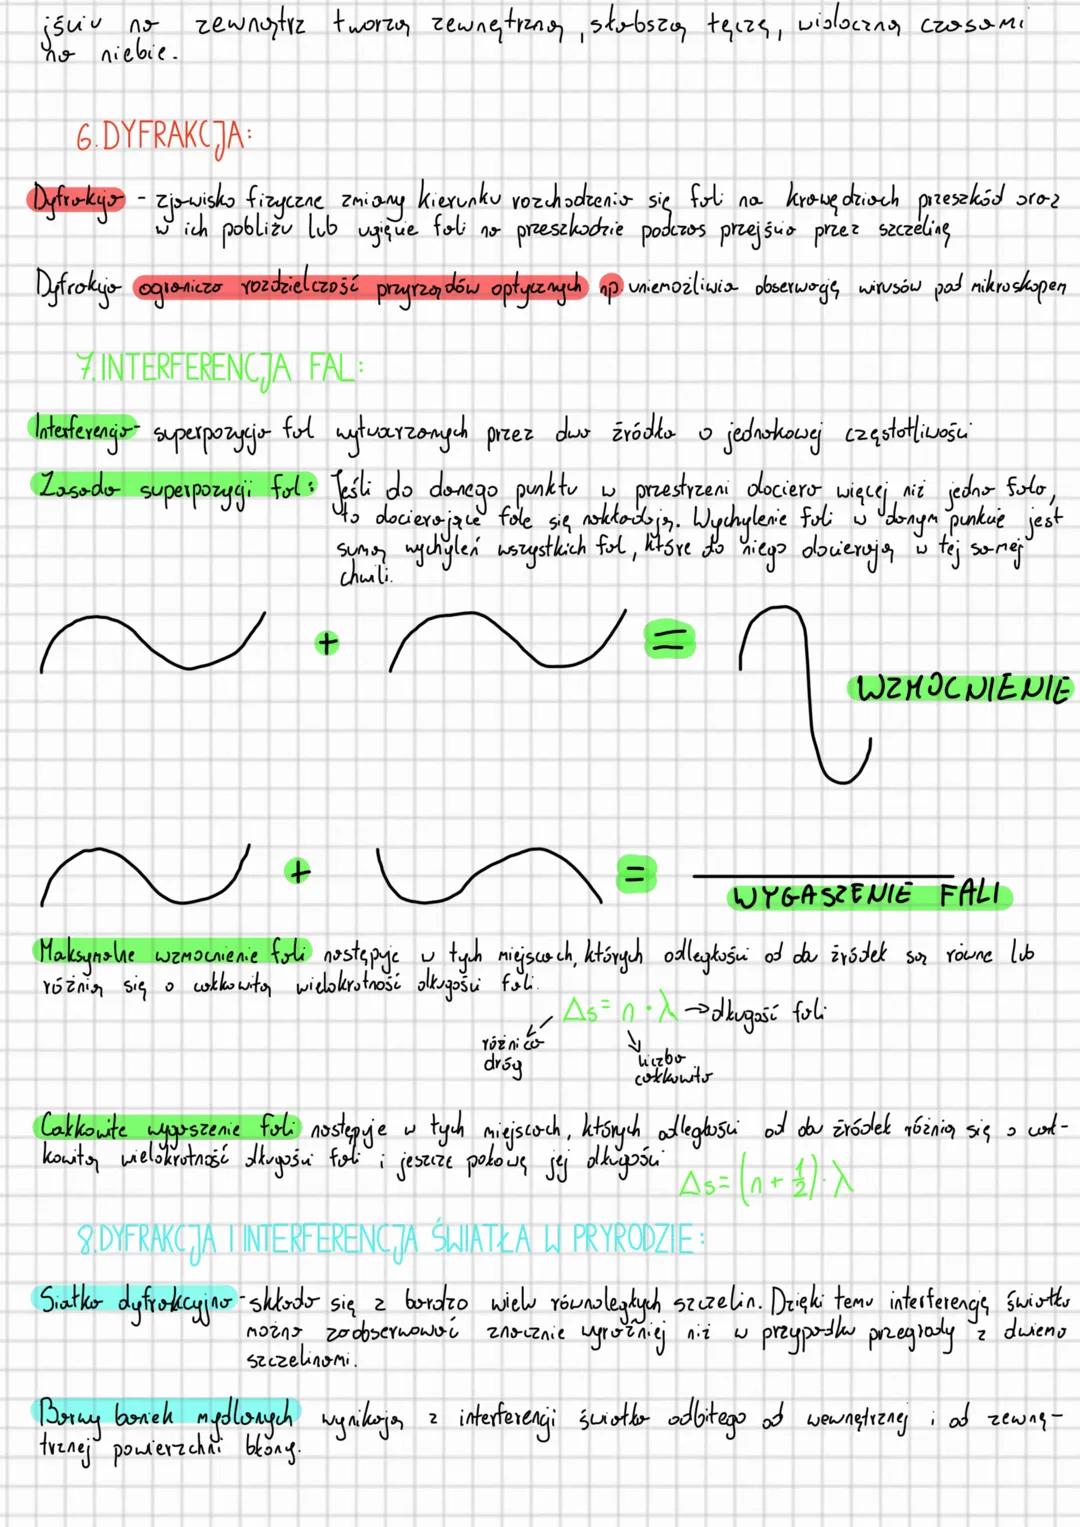 jściu na zewnątrz tworzą zewnętrzną, słabszą tęczę, widoczną czasami
na niebie.
6.DYFRAKCJA:
Dyfrakcja - zjawisko fizyczne zmiany kierunku rozchodzenia się fali na krawędziach przeszkód oraz
w ich pobliżu lub ugięcie fali na przeszkodzie podczas przejścia przez szczelinę
Dyfrakcja ogranicza rozdzielczość przyrządów optycznych np uniemożliwia obserwację wirusów pod mikroskopem
7.INTERFERENCJA FAL:
Interferencja- superpozycja fal wytwarzanych przez dwa źródła o jednakowej częstotliwości
Zasada superpozycji fal: Jeśli do danego punktu w przestrzeni dociera więcej niż jedna fala,
to docierające fale się nakładają. Wychylenie fali w danym punkcie jest
sumą wychyleń wszystkich fal, które do niego docierają w tej samej
chwili.
+ =
WZMOCNIENIE
+ =
WYGASZENIE FALI
Maksymalne wzmocnienie fali następuje w tych miejscach, których odległości od obu źródeł są równe lub
różnią się o całkowitą wielokrotność długości fali.
Δs= n·λ →długość fali
różnica
dróg
liczba
całkowita
Całkowite wygaszenie fali następuje w tych miejscach, których odległości od obu źródeł różnią się o cał-
kowitą wielokrotność długości fali i jeszcze połowę jej długości
Δs=(n+½)·λ
8.DYFRAKCJA I INTERFERENCJA ŚWIATŁA W PRYRODZIE:
Siatka dyfrakcyjna-składa się z bardzo wielu równoległych szczelin. Dzięki temu interferencję światła
można zaobserwować znacznie wyraźniej niż w przypadku przegrady z dwiema
szczelinami.
Barwy baniek mydlanych wynikają z interferencji światła odbitego od wewnętrznej i od zewnę-
trznej powierzchni błony.